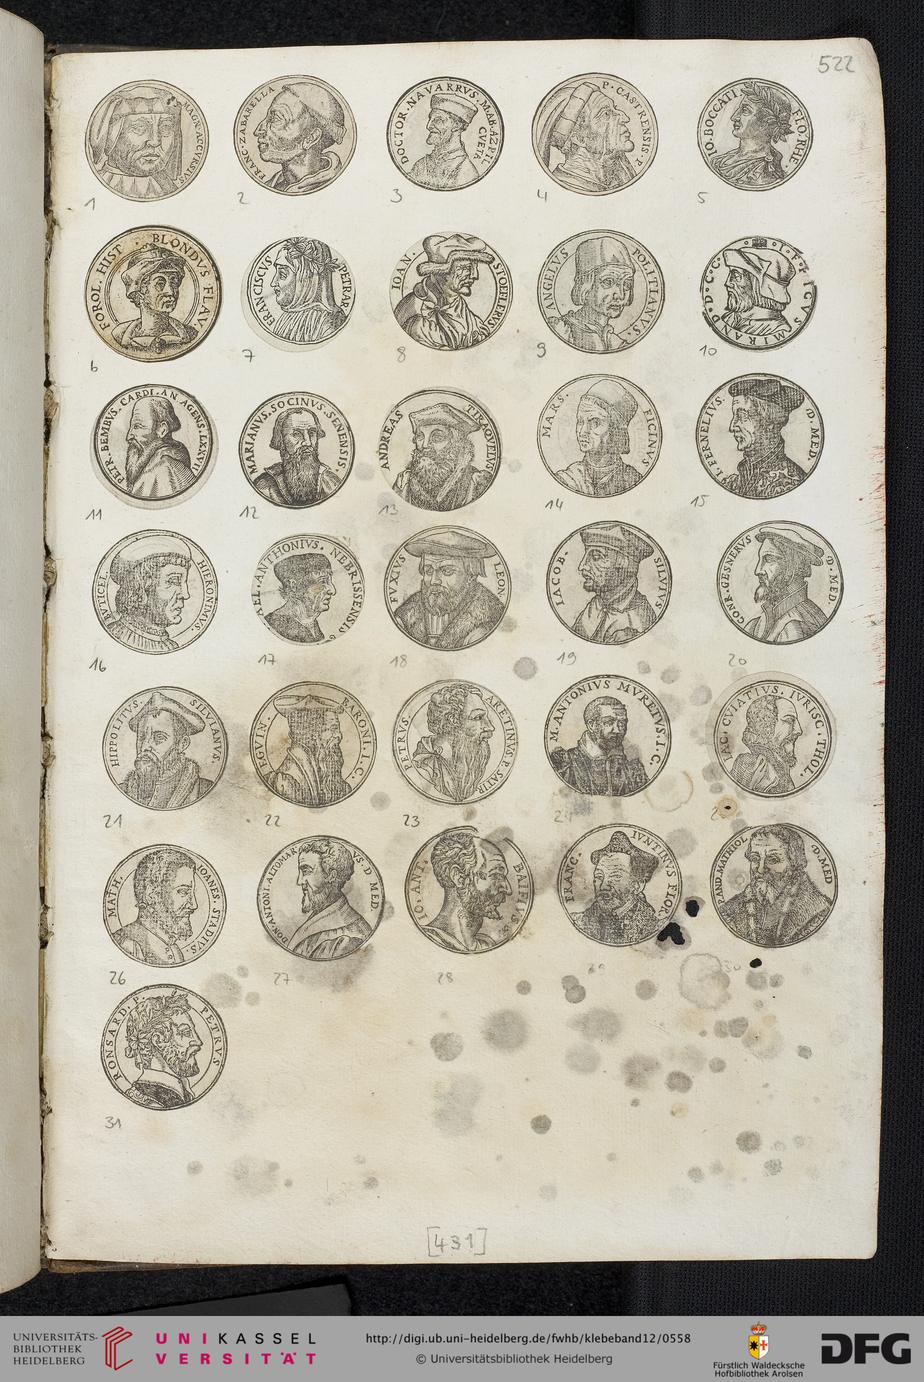 522
MAG. ACCVRSIVS.
1
FRANC. ZABARELLA
2
DOCTOR. NAVARRVS. MAR. AZPILCVETA
3
P. CASTRENSIS. P.
4
IO. BOCCATI FLO. RHE.
5
FOROL. HIST BLONDVS FLAV.
6
FRANCISCVS PETRAR
7
IOAN. STOEFLERVS
8
ANGLVS POLLITIANVS.
9
MIRAND. D. C. C.
10
PETR. BEMBVS. CARDI. AN AGENS. LXXVII
11
MARIANVS. SOCINVS. SENENSIS.
12
ANDREAS TIRAQVELLVS
13
MARS. FICINVS
14
I. FERNELIVS. D. MED.
15
BVTICEL HIERONIMVS.
16
AEL. ANTHONIVS. NEBRISSENSIS
17
FVXIVS LEON.
18
IACOB. SILVIVS
19
CONR. GESNERVS D. MED.
20
HIPPOLITVS SILVIANVS.
21
EGVIN. BARONI. I. C.
22
PETRVS. ARETINVS. P. SATIR
23
M. ANTONIVS MVRETVS. I. C.
24
IAC. CVIATIVS. IVRISC. THOL.
MATH. IOANES. STADIVS.
26
DON. ANTONI. ALTOMAR VS. D MED.
27
IO. ANT. BAIFIVS
28
FRANC. IVNTINVS FLOR.
29
P. AND. MATHIOL. D. MED
30
RONSARD. P. PETRVS
31
[431]
UNIVERSITÄTS-
BIBLIOTHEK
HEIDELBERG
UNIKASSEL
VERSITÄT
http://digi.ub.uni-heidelberg.de/fwhb/klebeband12/0558
© Universitätsbibliothek Heidelberg
Fürstlich Waldecksche
Hofbibliothek Arolsen
DFG